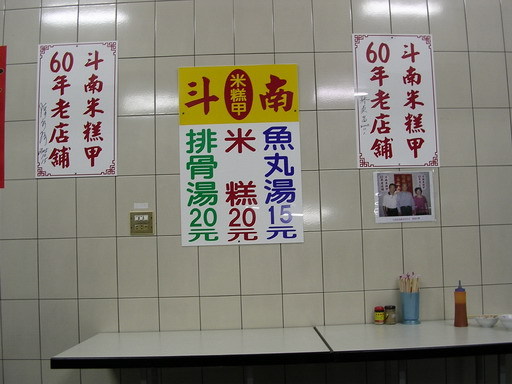 斗南米糕甲
60年老店舖
南
米糕甲
斗
魚丸湯15元
米糕20元
排骨湯20元
斗南米糕甲
60年老店舖